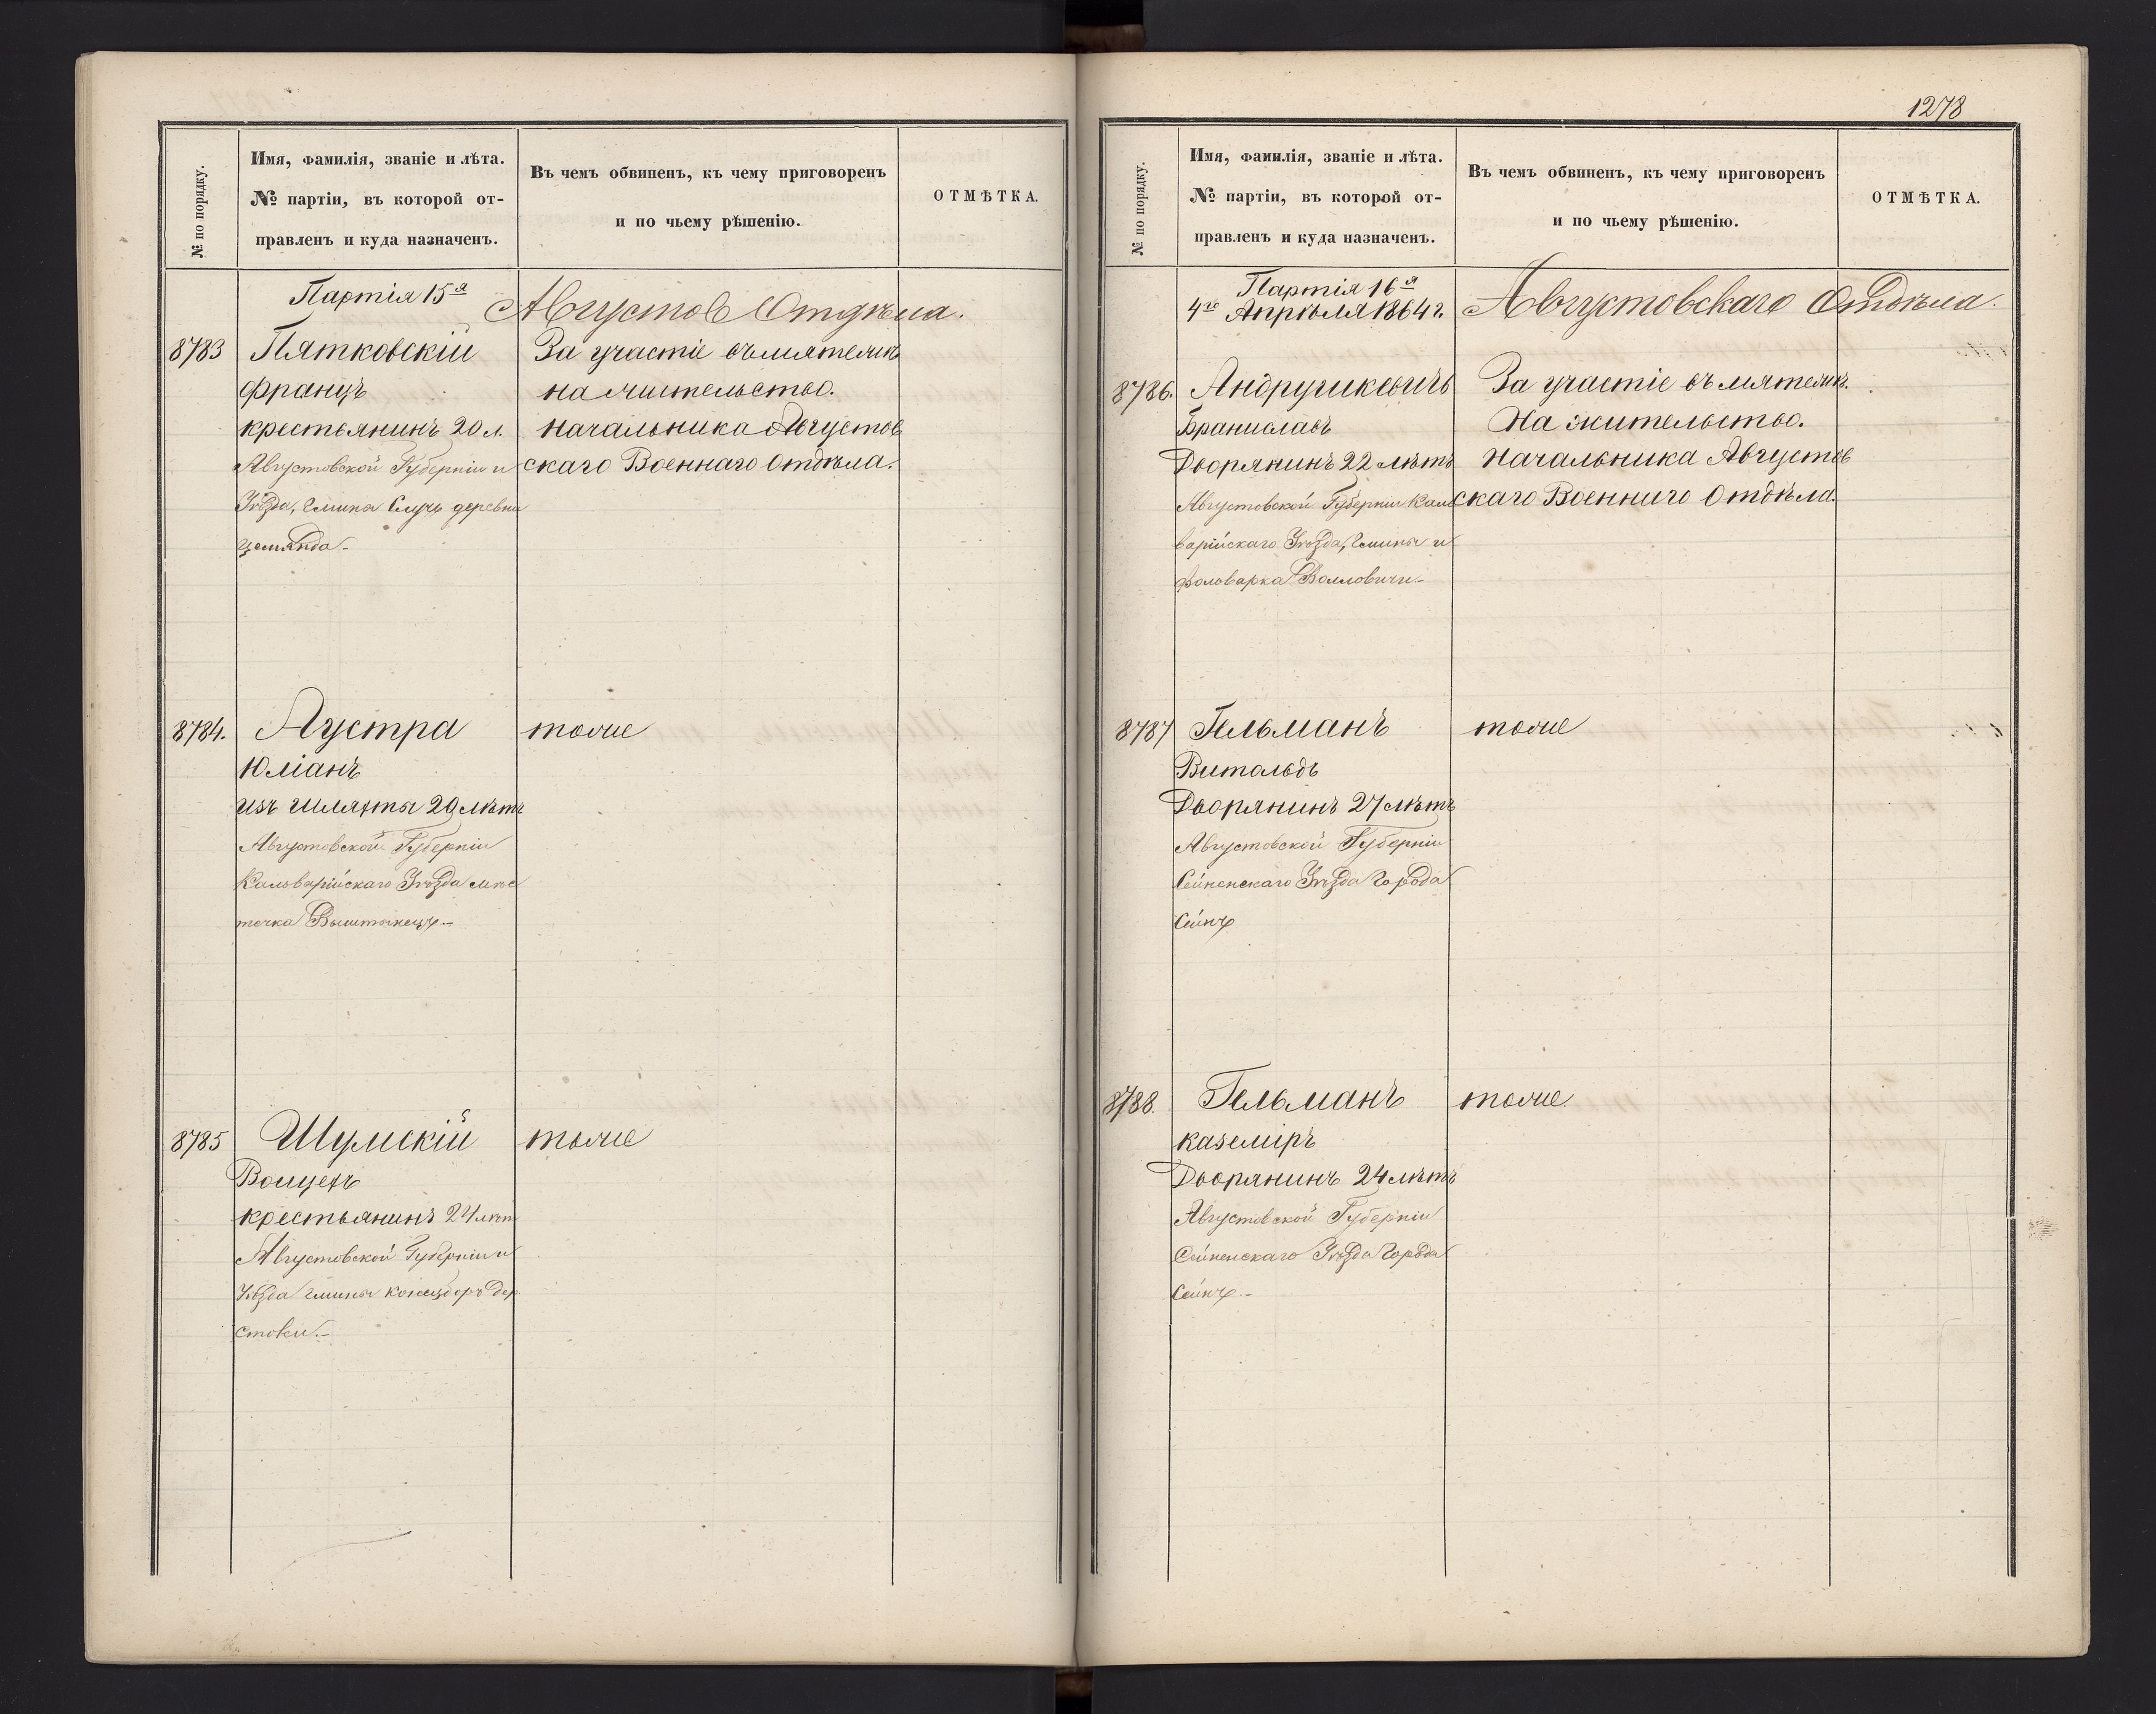 № по порядку.
Имя, фамилія, званіе и лѣта.
№ партіи, въ которой от-
правленъ и куда назначенъ.
Въ чемъ обвиненъ, къ чему приговоренъ
и по чьему рѣшенію.
ОТМѢТКА.
Партія 15я
Августов Отдѣла.
8783
Пятковскій
Францъ
крестьянинъ 20 л.
Августовской Губерніи и
Уѣзда, гмины деревни
За участіе въ мятежѣ
на жительство.
Начальника Августов
скаго Военнаго Отдѣла.
8784.
Аустра
Юліанъ
изъ шляхты 29 лѣтъ
Августовской Губерніи
Кальварійскаго Уѣзда мѣс
течка Выштынецъ.-
тоже
8785
Шумскій
Войцехъ
крестьянинъ 24 лѣт
Августовской Губерніи и
Уѣзда гмины дер
тоже
1278
№ по порядку.
Имя, фамилія, званіе и лѣта.
№ партіи, въ которой от-
правленъ и куда назначенъ.
Въ чемъ обвиненъ, къ чему приговоренъ
и по чьему рѣшенію.
ОТМѢТКА.
Партія 16я
4го Апрѣля 1864 г.
Августовскаго Отдѣла.
8786.
Андрушкевичъ
Браниславъ
Дворянинъ 22 лѣтъ
Августовской Губерніи Каль
варійскаго Уѣзда, Гмины и
фольварка Волловичи-
За участіе въ мятежѣ.
На жительство.
Начальника Августов
скаго Военнаго Отдѣла.
8787
Гельманъ
Витольдъ
Дворянинъ 27 лѣтъ
Августовской Губерніи
Сейненскаго Уѣзда Города
Сейнъ
тоже
8788.
Гельманъ
Каземіръ
Дворянинъ 24 лѣтъ
Августовской Губерніи
Сейненскаго Уѣзда Города
Сейнъ.-
тоже.